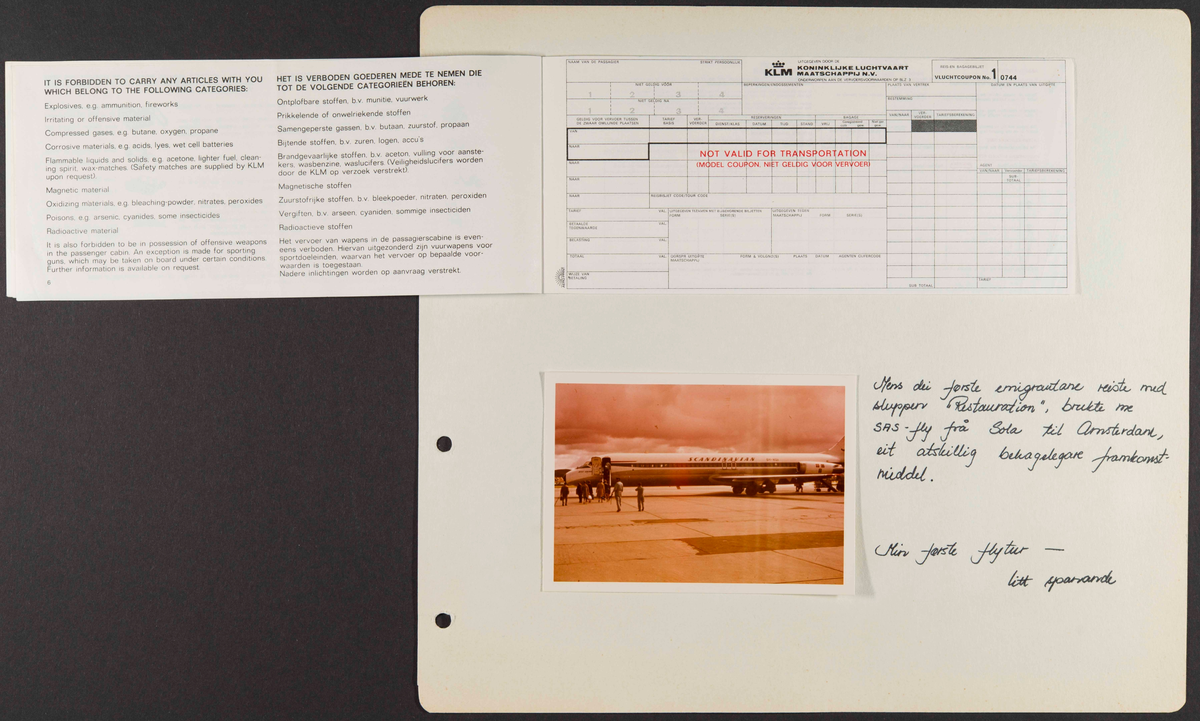 IT IS FORBIDDEN TO CARRY ANY ARTICLES WITH YOU
WHICH BELONG TO THE FOLLOWING CATEGORIES:
Explosives, e.g. ammunition, fireworks
Irritating or offensive material
Compressed gases, e.g. butane, oxygen, propane
Corrosive materials, e.g. acids, lyes, wet cell batteries
Flammable liquids and solids, e.g. acetone, lighter fuel, clean-
ing spirit, wax-matches (Safety matches are supplied by KLM
upon request).
Magnetic material
Oxidizing materials, e.g. bleaching-powder, nitrates, peroxides
Poisons, e.g. arsenic, cyanides, some insecticides
Radioactive material
It is also forbidden to be in possession of offensive weapons
in the passenger cabin. An exception is made for sporting
guns, which may be taken on board under certain conditions.
Further information is available on request.
6
HET IS VERBODEN GOEDEREN MEDE TE NEMEN DIE
TOT DE VOLGENDE CATEGORIEËN BEHOREN:
Ontplofbare stoffen, b.v. munitie, vuurwerk
Prikkelende of onwelriekende stoffen
Samengeperste gassen, b.v. butaan, zuurstof, propaan
Bijtende stoffen, b.v. zuren, logen, accu's
Brandgevaarlijke stoffen, b.v. aceton, vulling voor aanste-
kers, wasbenzine, waslucifers (Veiligheidslucifers worden
door de KLM op verzoek verstrekt).
Magnetische stoffen
Zuurstofrijke stoffen, b.v. bleekpoeder, nitraten, peroxiden
Vergiften, b.v. arseen, cyaniden, sommige insecticiden
Radioactieve stoffen
Het vervoer van wapens in de passagierscabine is even-
eens verboden. Hiervan uitgezonderd zijn vuurwapens voor
sportdoeleinden, waarvan het vervoer op bepaalde voor-
waarden is toegestaan.
Nadere inlichtingen worden op aanvraag verstrekt.
NAAM VAN DE PASSAGIER
NIET GELDIG VÓÓR
1 2 3 4
NIET GELDIG NA
1 2 3 4
KLM
UITGEGEVEN DOOR DE
KONINKLIJKE LUCHTVAART
MAATSCHAPPIJ N.V.
VLUCHTCOUPON No. 1 0744
DATUM EN PLAATS VAN UITGIFTE
PLAATS VAN VERTREK
BESTEMMING
RESERVERINGEN
BAGAGE
VAN
NAAR
NAAR
NAAR
NAAR
NOT VALID FOR TRANSPORTATION
(MODEL COUPON, NIET GELDIG VOOR VERVOER)
TARIEF
BELASTING
TOTAAL
WIJZE VAN
BETALING
SUB TOTAAL
TARIEF
SCANDINAVIAN
Mens dei første emigrantane reiste med
sluppen "Restauration", brukte me
SAS-fly frå Sola til Amsterdam,
eit atskillig behagelegare framkomst-
middel.
Min første flytur —
litt spanande